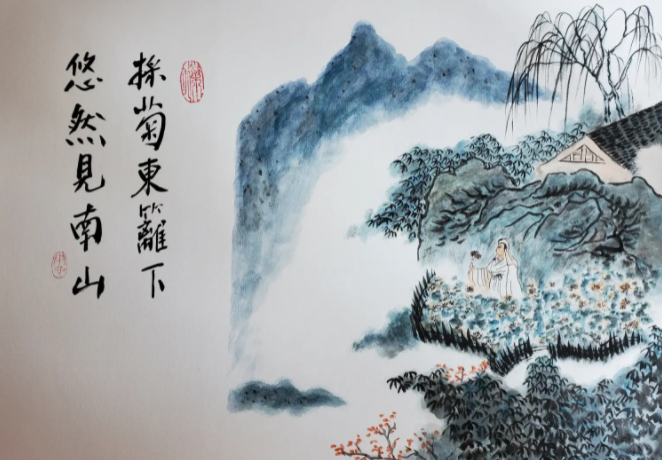 採菊東籬下
悠然見南山